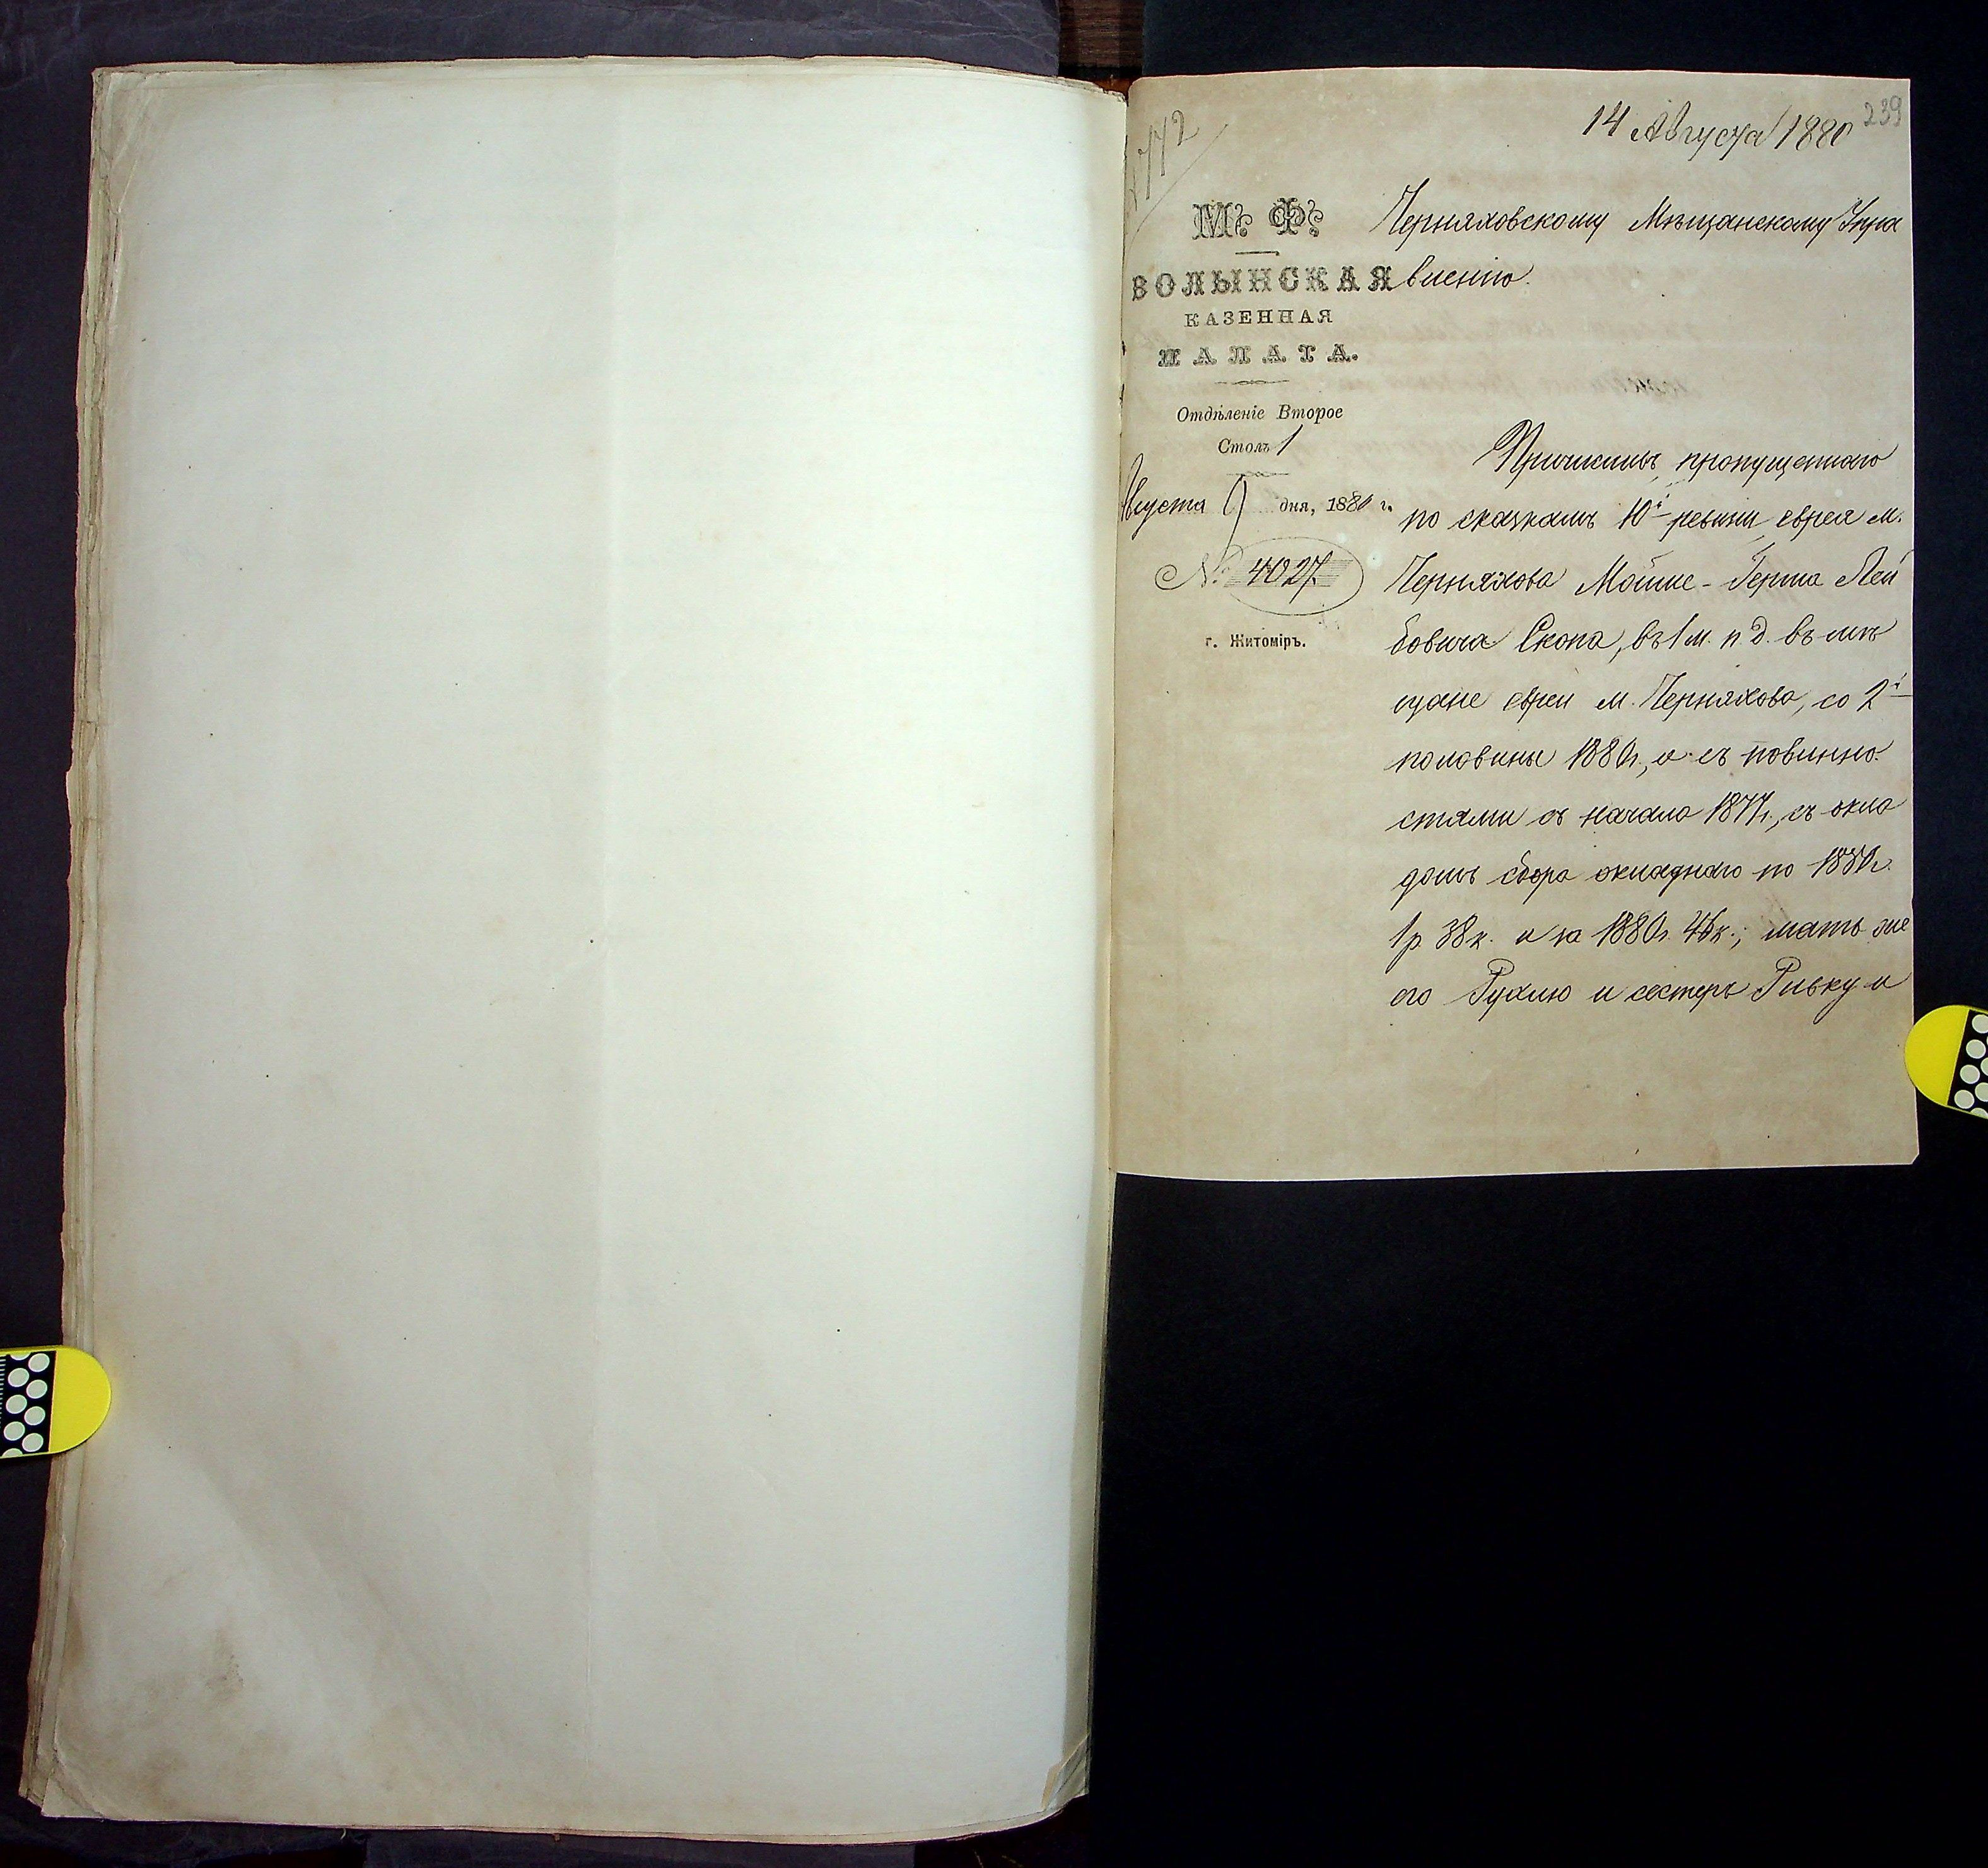 239
14 Августа 1880
М. Ф.
ВОЛЫНСКАЯ
КАЗЕННАЯ
ПАЛАТА.
Отдѣленіе Второе
Столъ 1
Августа 9 дня, 1880 г.
№ 4027.
г. Житомiръ.
Черняховскому Мѣщанскому Упра
вленію.
Причисливъ, пропущеннаго
по сказкамъ 10й ревизіи, еврея м.
Черняхова Мошке-Герша Лей
бовича Скопа, въ 1 м. п. д. въ мѣ
щане евреи м. Черняхова, со 2й
половины 1880г., а съ повинно-
стями съ начала 1877г., съ окла
домъ сбора окладнаго по 1880г.
1 р. 38 к. и за 1880г. 46 к.; мать же
его Рухлю и сестеръ Ривку и